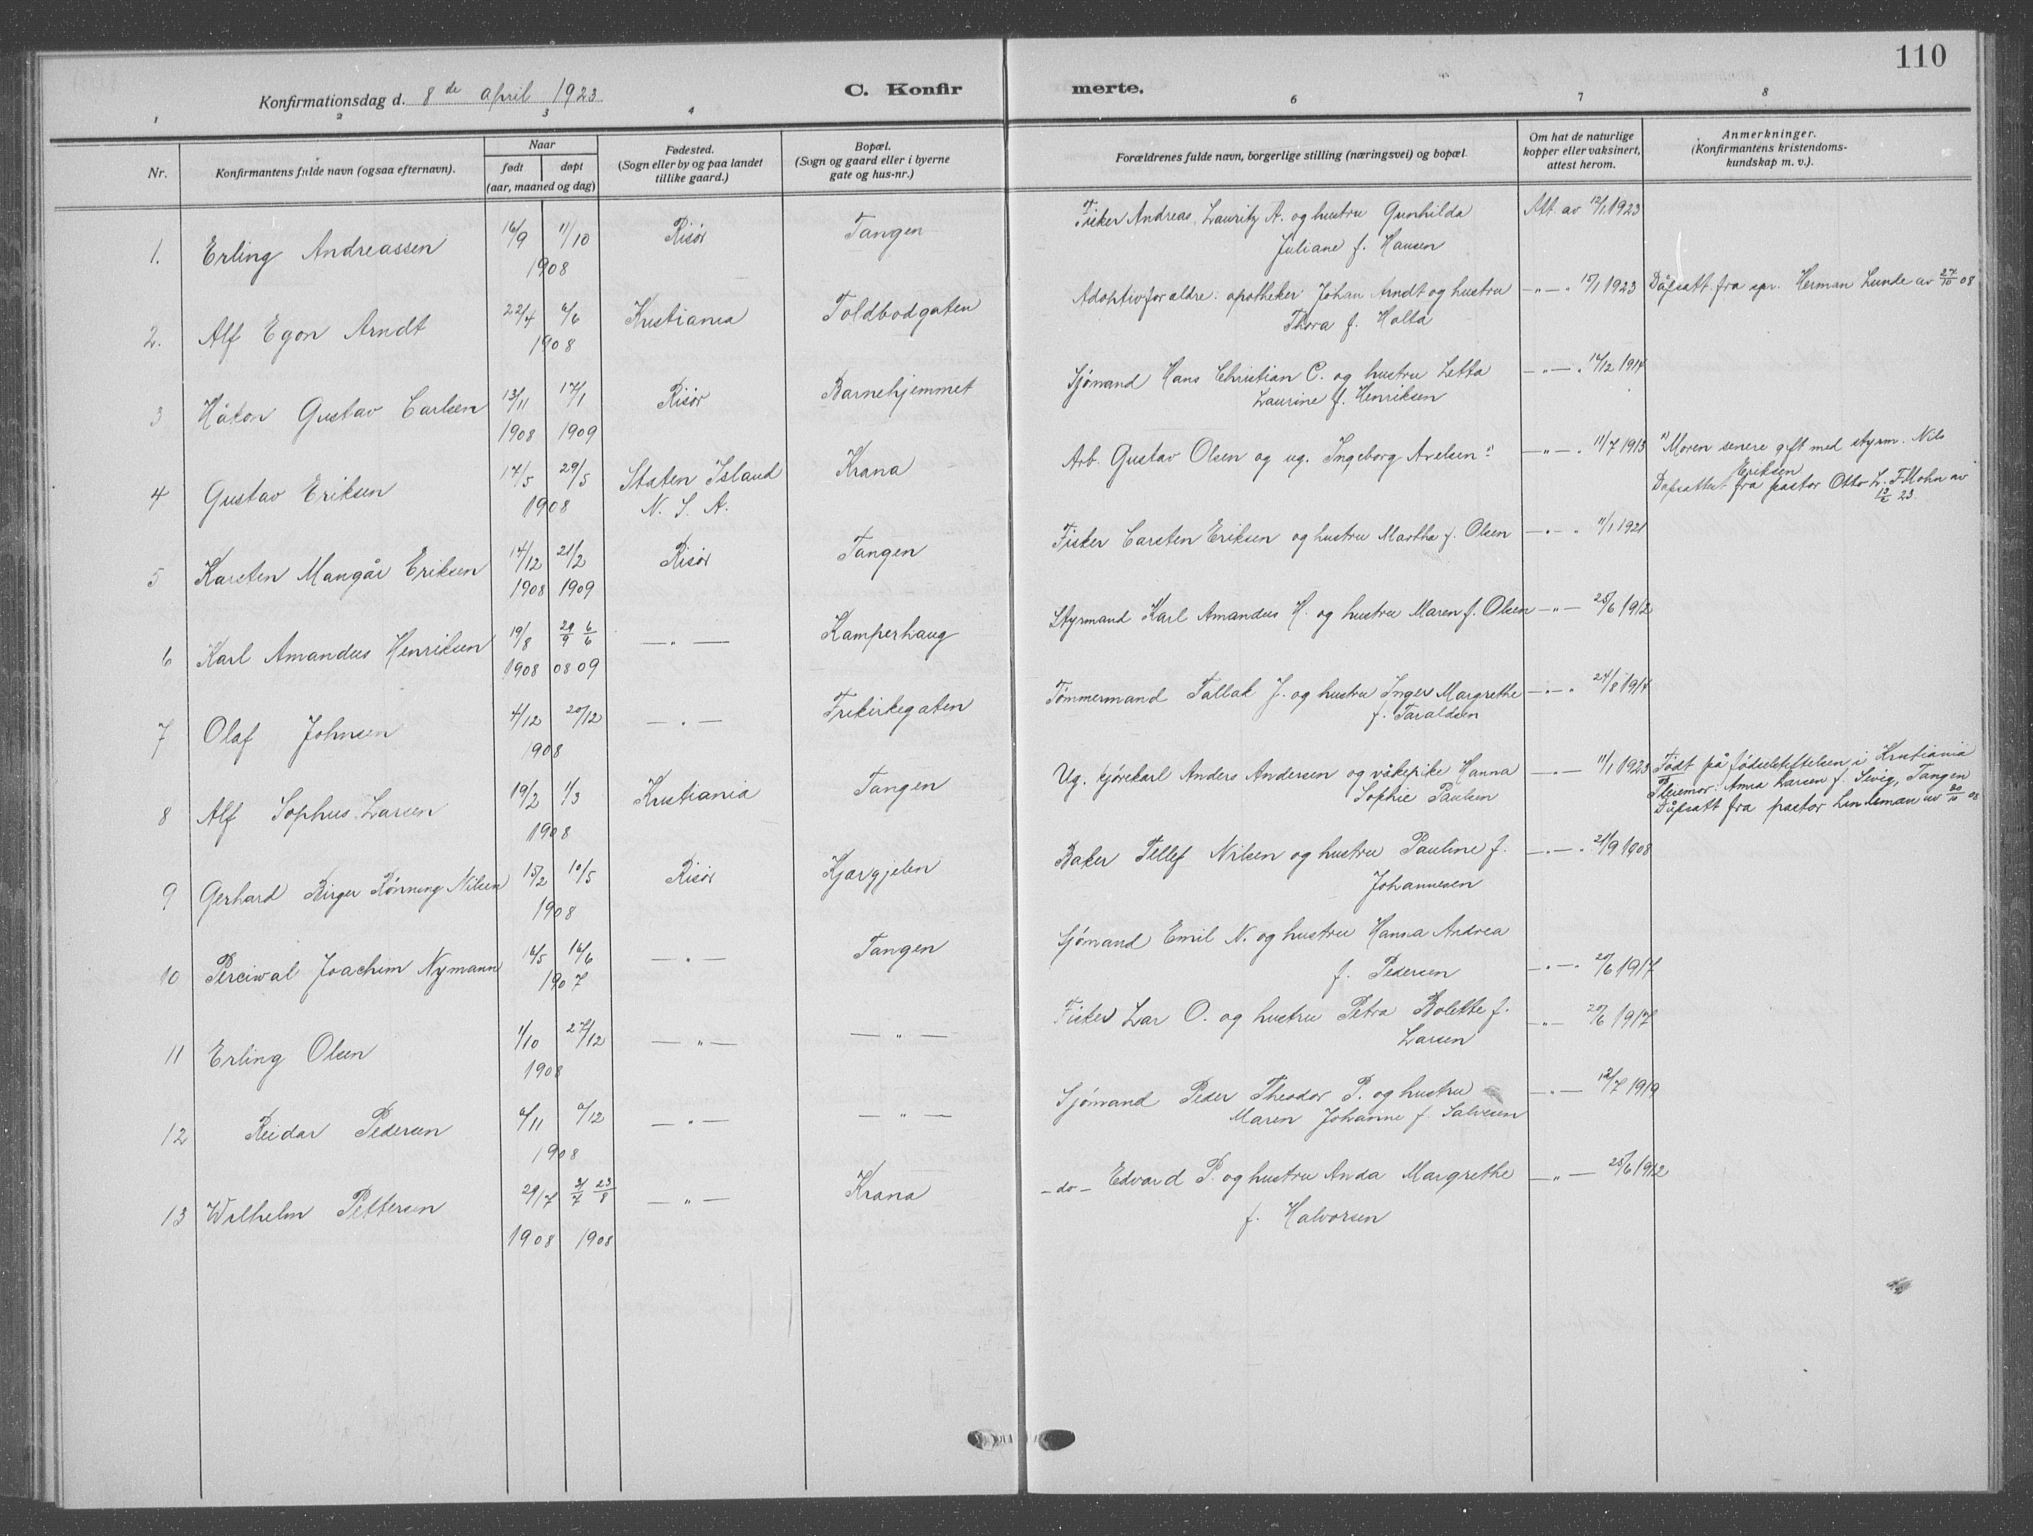 110
Konfirmationsdag d. 8de april 1923
C. Konfirmerte.
1 2 3 4 6 7 8
Nr.
Konfirmantens fulde navn (ogsaa efternavn).
Naar
født døpt
(aar, maaned og dag)
Fødested.
(Sogn eller by og paa landet
tillike gaard.)
Bopæl.
(Sogn og gaard eller i byerne
gate og hus-nr.)
Forældrenes fulde navn, borgerlige stilling (næringsvei) og bopæl.
Om hat de naturlige
kopper eller vaksinert,
attest herom.
Anmerkninger.
(Konfirmantens kristendoms-
kundskap m. v.).
1. Erling Andreassen 16/9 11/10 1908 Risør Tangen Fisker Andreas Lauritz A. og hustru Gunhilda Att. av 12/1 1923
Juliane f. Hansen
2. Alf Egon Arndt 22/4 6/6 1908 Kristiania Toldbodgaten Adoptivforældre: apotheker Johan Arndt og hustru —„— 15/1 1923 Dåpsatt. fra spr. Herman Lunde av 27/10 08
Thora f. Holta
3 Håkon Gustav Carlsen 13/11 1908 17/1 1909 Risør Barnehjemmet Sjømand Hans Christian C. og hustru Letta —„— 14/12 1914
Laurine f. Henriksen
4 Gustav Eriksen 17/5 29/5 1908 Staten Island N. S. A. Krana Arb. Gustav Olsen og ug. Ingeborg Axelsen 1) —„— 11/7 1913 1) Moren senere gift med styrm. Nils
Eriksen
Dåpsattest fra pastor Otto L. F. Mohn av
23.
5 Karsten Mangår Eriksen 14/12 1908 21/2 1909 Risør Tangen Fisker Carsten Eriksen og hustru Martha f. Olsen —„— 11/1 1921
6 Karl Amandus Henriksen 19/8 1908 29/9 6/6 08 09 —„— Kamperhaug Styrmand Karl Amandus H. og hustru Maren f. Olsen —„— 25/6 1912
7 Olaf Johnsen 4/12 20/12 1908 —„— Frikirkegaten Tømmermand Tallak J. og hustru Inger Margrethe —„— 24/8 1914
f. Taraldsen
8 Alf Sophus Larsen 19/2 1/3 1908 Kristiania Tangen Ug. kjørekarl Anders Andersen og våkepike Hanna —„— 11/1 1923 Født på fødselstiftelsen i Kristiania
Sophie Paulsen Pleiemor: Anna Larsen f. Sivig, Tangen
Dåpsatt fra pastor Lindeman av 20/10 08
9 Gerhard Birger Rønning Nilsen 15/2 10/5 1908 Risør Kjærgjelen Baker Tellef Nilsen og hustru Pauline f. —„— 21/9 1908
Johannesen
10 Perciwal Joachim Nymann 6/5 16/6 1907 —„— Tangen Sjømand Emil N. og hustru Hanna Andrea
f. Pedersen —„— 20/6 1917
11 Erling Olsen 1/10 27/12 1908 —„— —„— Fisker Lar O. og hustru Petra Bolette f. —„— 20/6 1917
Larsen
12 Reidar Pedersen 6/11 6/12 1908 —„— —„— Sjømand Peder Theodor P. og hustru —„— 12/7 1919
Maren Johanne f. Salvesen
13 Wilhelm Pettersen 29/7 1908 31/7 23/8 1908 —„— Krana —do— Edvard P. og hustru Anda Margrethe —„— 25/6 1912
f. Halvorsen